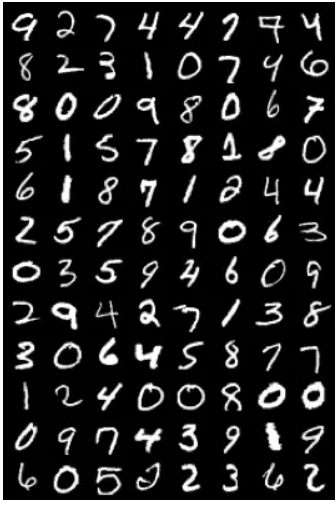 9 2 7 4 4 7 7 4
8 2 3 1 0 7 4 6
8 0 0 9 8 0 6 7
5 1 5 7 8 1 8 0
6 1 8 7 1 2 4 4
2 5 7 8 9 0 6 3
0 3 5 9 4 6 0 9
2 9 4 2 7 1 3 8
3 0 6 4 5 8 7 7
1 2 4 0 0 8 0 0
0 9 7 4 3 9 1 9
6 0 5 2 2 3 6 2